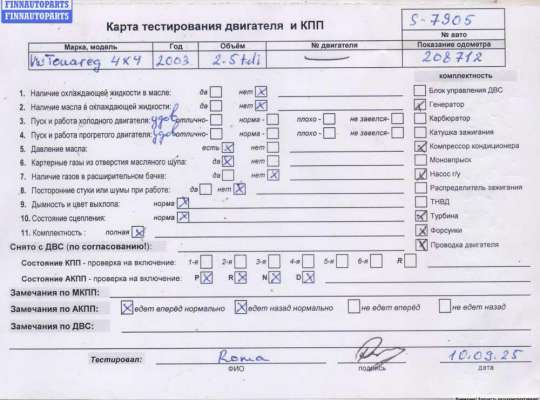 FINNAUTOPARTS
FINNAUTOPARTS
Карта тестирования двигателя и КПП
S-7905
№ авто
Марка, модель Год Объём № двигателя Показание одометра
VW Touareg 4x4 2003 2.5tdi 208712
комплектность
1. Наличие охлаждающей жидкости в масле: да нет x
2. Наличие масла в охлаждающей жидкости: да нет x
3. Пуск и работа холодного двигателя: удов отлично- норма - плохо - не завелся-
4. Пуск и работа прогретого двигателя: удов отлично- норма - плохо - не завелся-
5. Давление масла: есть x нет
6. Картерные газы из отверстия масляного щупа: да x нет
7. Наличие газов в расширительном бачке: да нет x
8. Посторонние стуки или шумы при работе: да нет x
9. Дымность и цвет выхлопа: норма x
10. Состояние сцепления: норма x
11. Комплектность : полная x
Блок управления ДВС
Генератор
Карбюратор
Катушка зажигания
Компрессор кондиционера
Моновпрыск
Насос г/у
Распределитель зажигания
ТНВД
Турбина
Форсунки
Проводка двигателя
Снято с ДВС (по согласованию!):
Состояние КПП - проверка на включение: 1-я 2-я 3-я 4-я 5-я 6-я R
Состояние АКПП - проверка на включение: P x R x N x D x
Замечания по МКПП:
Замечания по АКПП: x едет вперёд нормально x едет назад нормально не едет вперёд не едет назад
Замечания по ДВС:
Тестировал: Roma 10.09.25
ФИО подпись дата